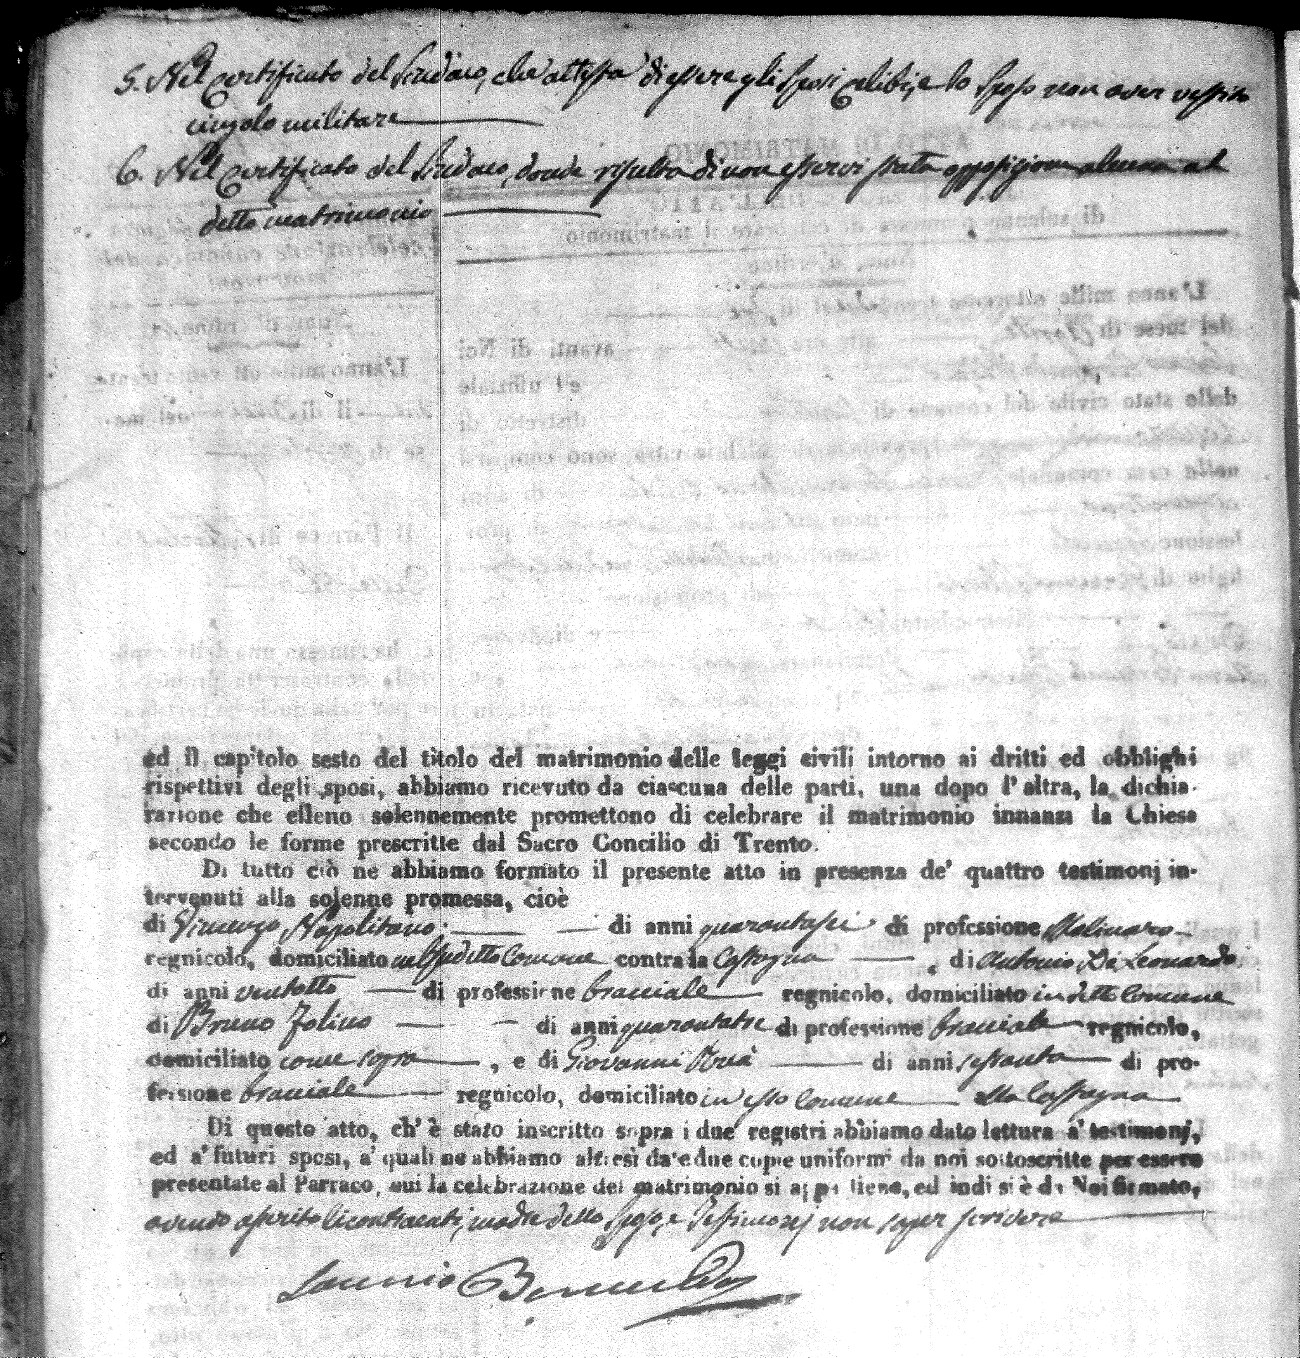 5. Nel certificato del Sindaco, che attesta di essere gli Sposi celibi, e lo Sposo non aver vestito
cingolo militare
6. Nel certificato del Sindaco, donde risulta di non esservi stata opposizione alcuna al
detto matrimonio
ed il capitolo sesto del titolo del matrimonio delle leggi civili intorno ai dritti ed obblighi
rispettivi degli sposi, abbiamo ricevuto da ciascuna delle parti, una dopo l'altra, la dichia-
razione che elleno solennemente promettono di celebrare il matrimonio innanzi la Chiesa
secondo le forme prescritte dal Sacro Concilio di Trento.
Di tutto ciò ne abbiamo formato il presente atto in presenza de' quattro testimonj in-
tervenuti alla solenne promessa, cioè
di Vincenzo Napolitano di anni quarantasei di professione Molinaro
regnicolo, domiciliato nel sudetto Comune contrada Castagna di Antonio Di Leonardo
di anni ventotto di professione bracciale regnicolo, domiciliato in detto Comune
di Bruno Folino di anni quarantatre di professione bracciale regnicolo,
domiciliato come sopra , e di Giovanni di anni sessanta di pro-
fessione bracciale regnicolo, domiciliato in esso Comune Castagna
Di questo atto, ch' è stato inscritto sopra i due registri abbiamo dato lettura a' testimonj,
ed a' futuri sposi, a' quali ne abbiamo altresì date due copie uniformi da noi sottoscritte per essere
presentate al Parroco, cui la celebrazione del matrimonio si appartiene, ed indi si è da Noi firmato,
avendo asserito li contraenti, madre dello Sposo, e Testimonj non saper scrivere